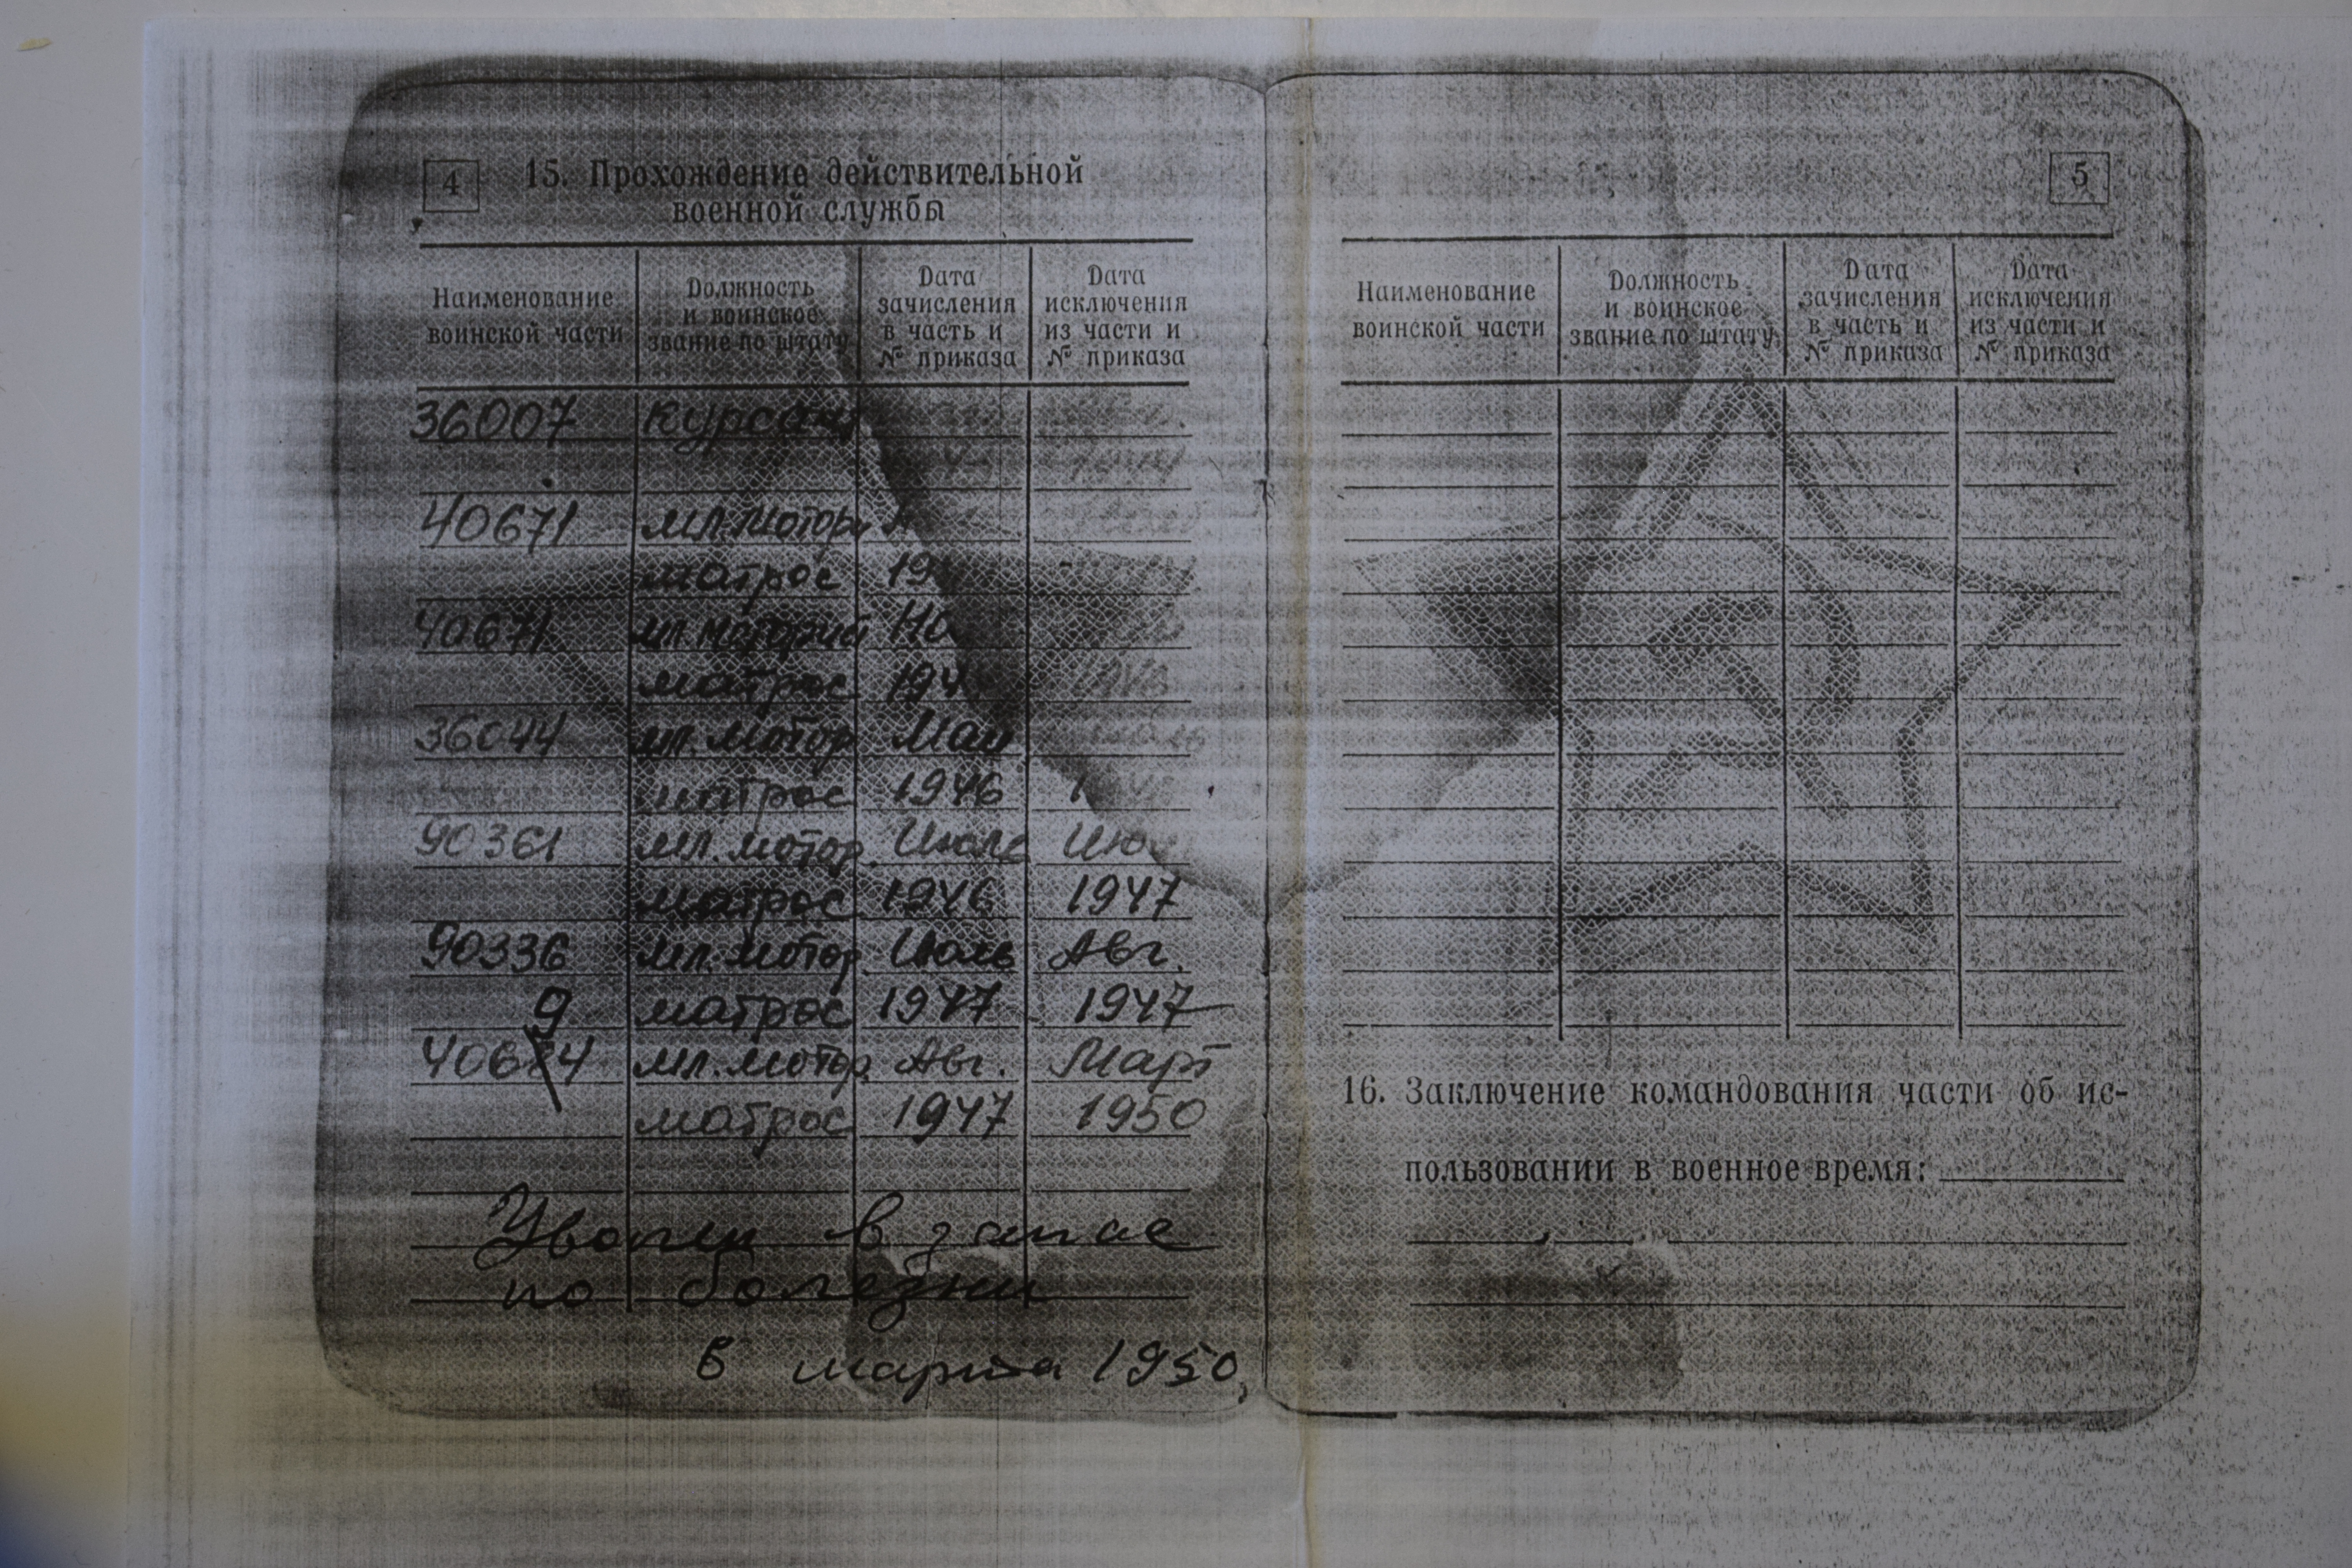 4
15. Прохождение действительной
военной службы
Наименование воинской части
Должность и воинское звание по штату
Дата зачисления в часть и № приказа
Дата исключения из части и № приказа
36007 курсант
1944
40671 мл. мотор.
матрос 19
40671 мл. моторист Но
матрос 194 1946
36044 мл. мотор Май
матрос 1946
90361 мл. мотор. Июль Июл
матрос 1946 1947
90336 мл. мотор. Июль Авг.
9 матрос 1947 1947
40674 мл. мотор. Авг. Март
матрос 1947 1950
Уволен в запас
по болезни
в марта 1950,
5
Наименование воинской части
Должность и воинское звание по штату
Дата зачисления в часть и № приказа
Дата исключения из части и № приказа
16. Заключение командования части об ис-
пользовании в военное время: